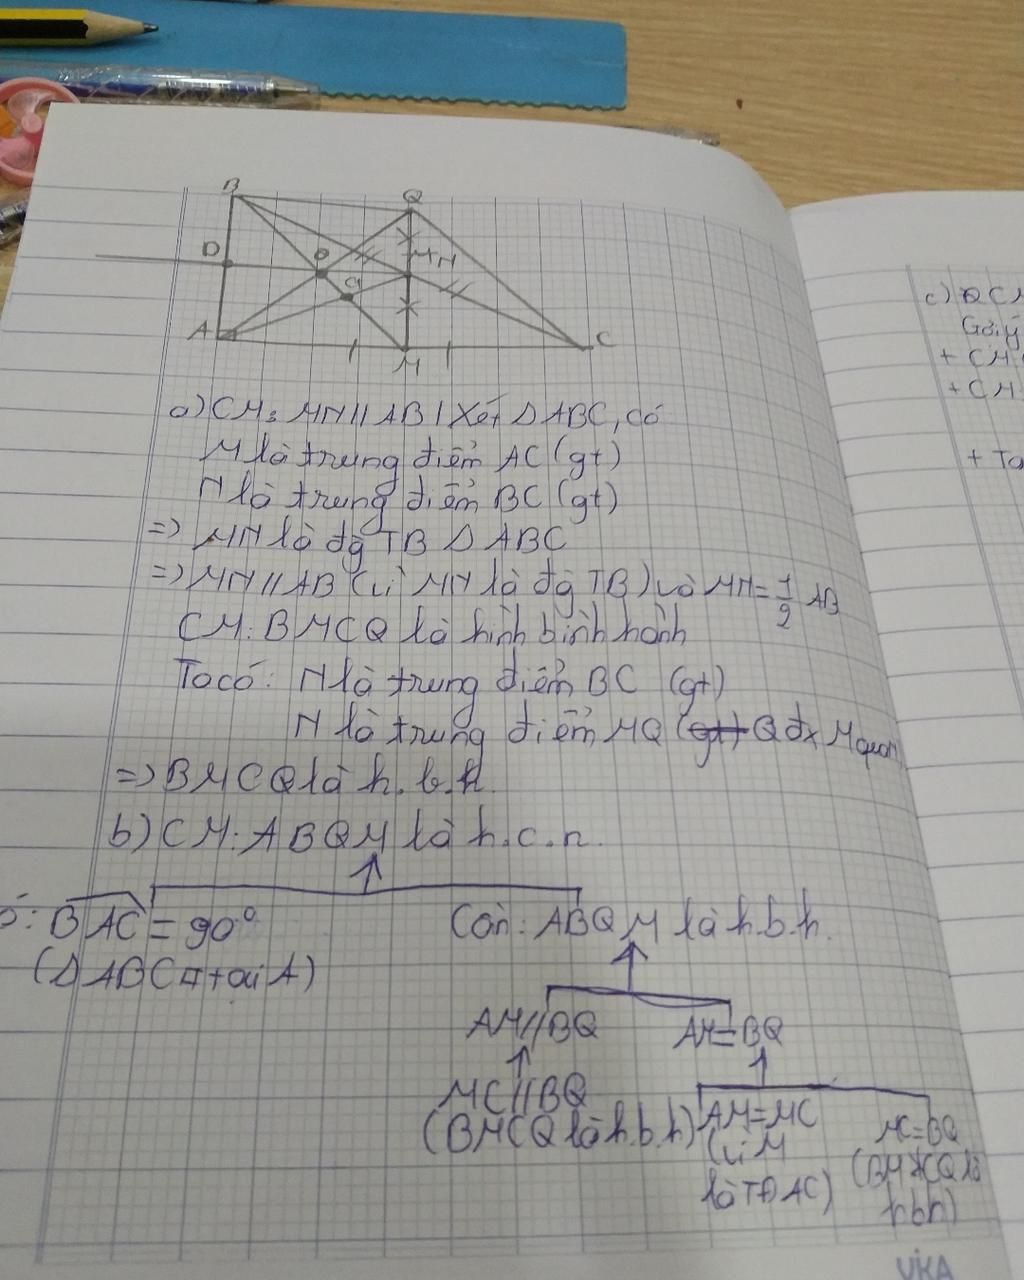 B
Q
D
O
N
G
A
M
C
a) CM: MN // AB | Xét Δ ABC, có
M là trung điểm AC (gt)
N là trung điểm BC (gt)
=> MN là đg TB Δ ABC
=> MN // AB (vì MN là đg TB) và MN = 1/2 AB
CM: BMCQ là hình bình hành
Ta có: N là trung điểm BC (gt)
N là trung điểm MQ (gt) Q đx M qua
=> BMCQ là h.b.h.
b) CM: ABQM là h.c.n.
ó: BAC = 90°
Cần: ABQM là h.b.h.
(Δ ABC tại A)
AM // BQ
AM = BQ
MC // BQ
(BMCQ là h.b.h)
AM = MC
(vì M
là TĐ AC)
MC = BQ
(BMCQ là
hbh)
c)
Gợi ý
+ CM
+ CM
+ Ta
VIKA